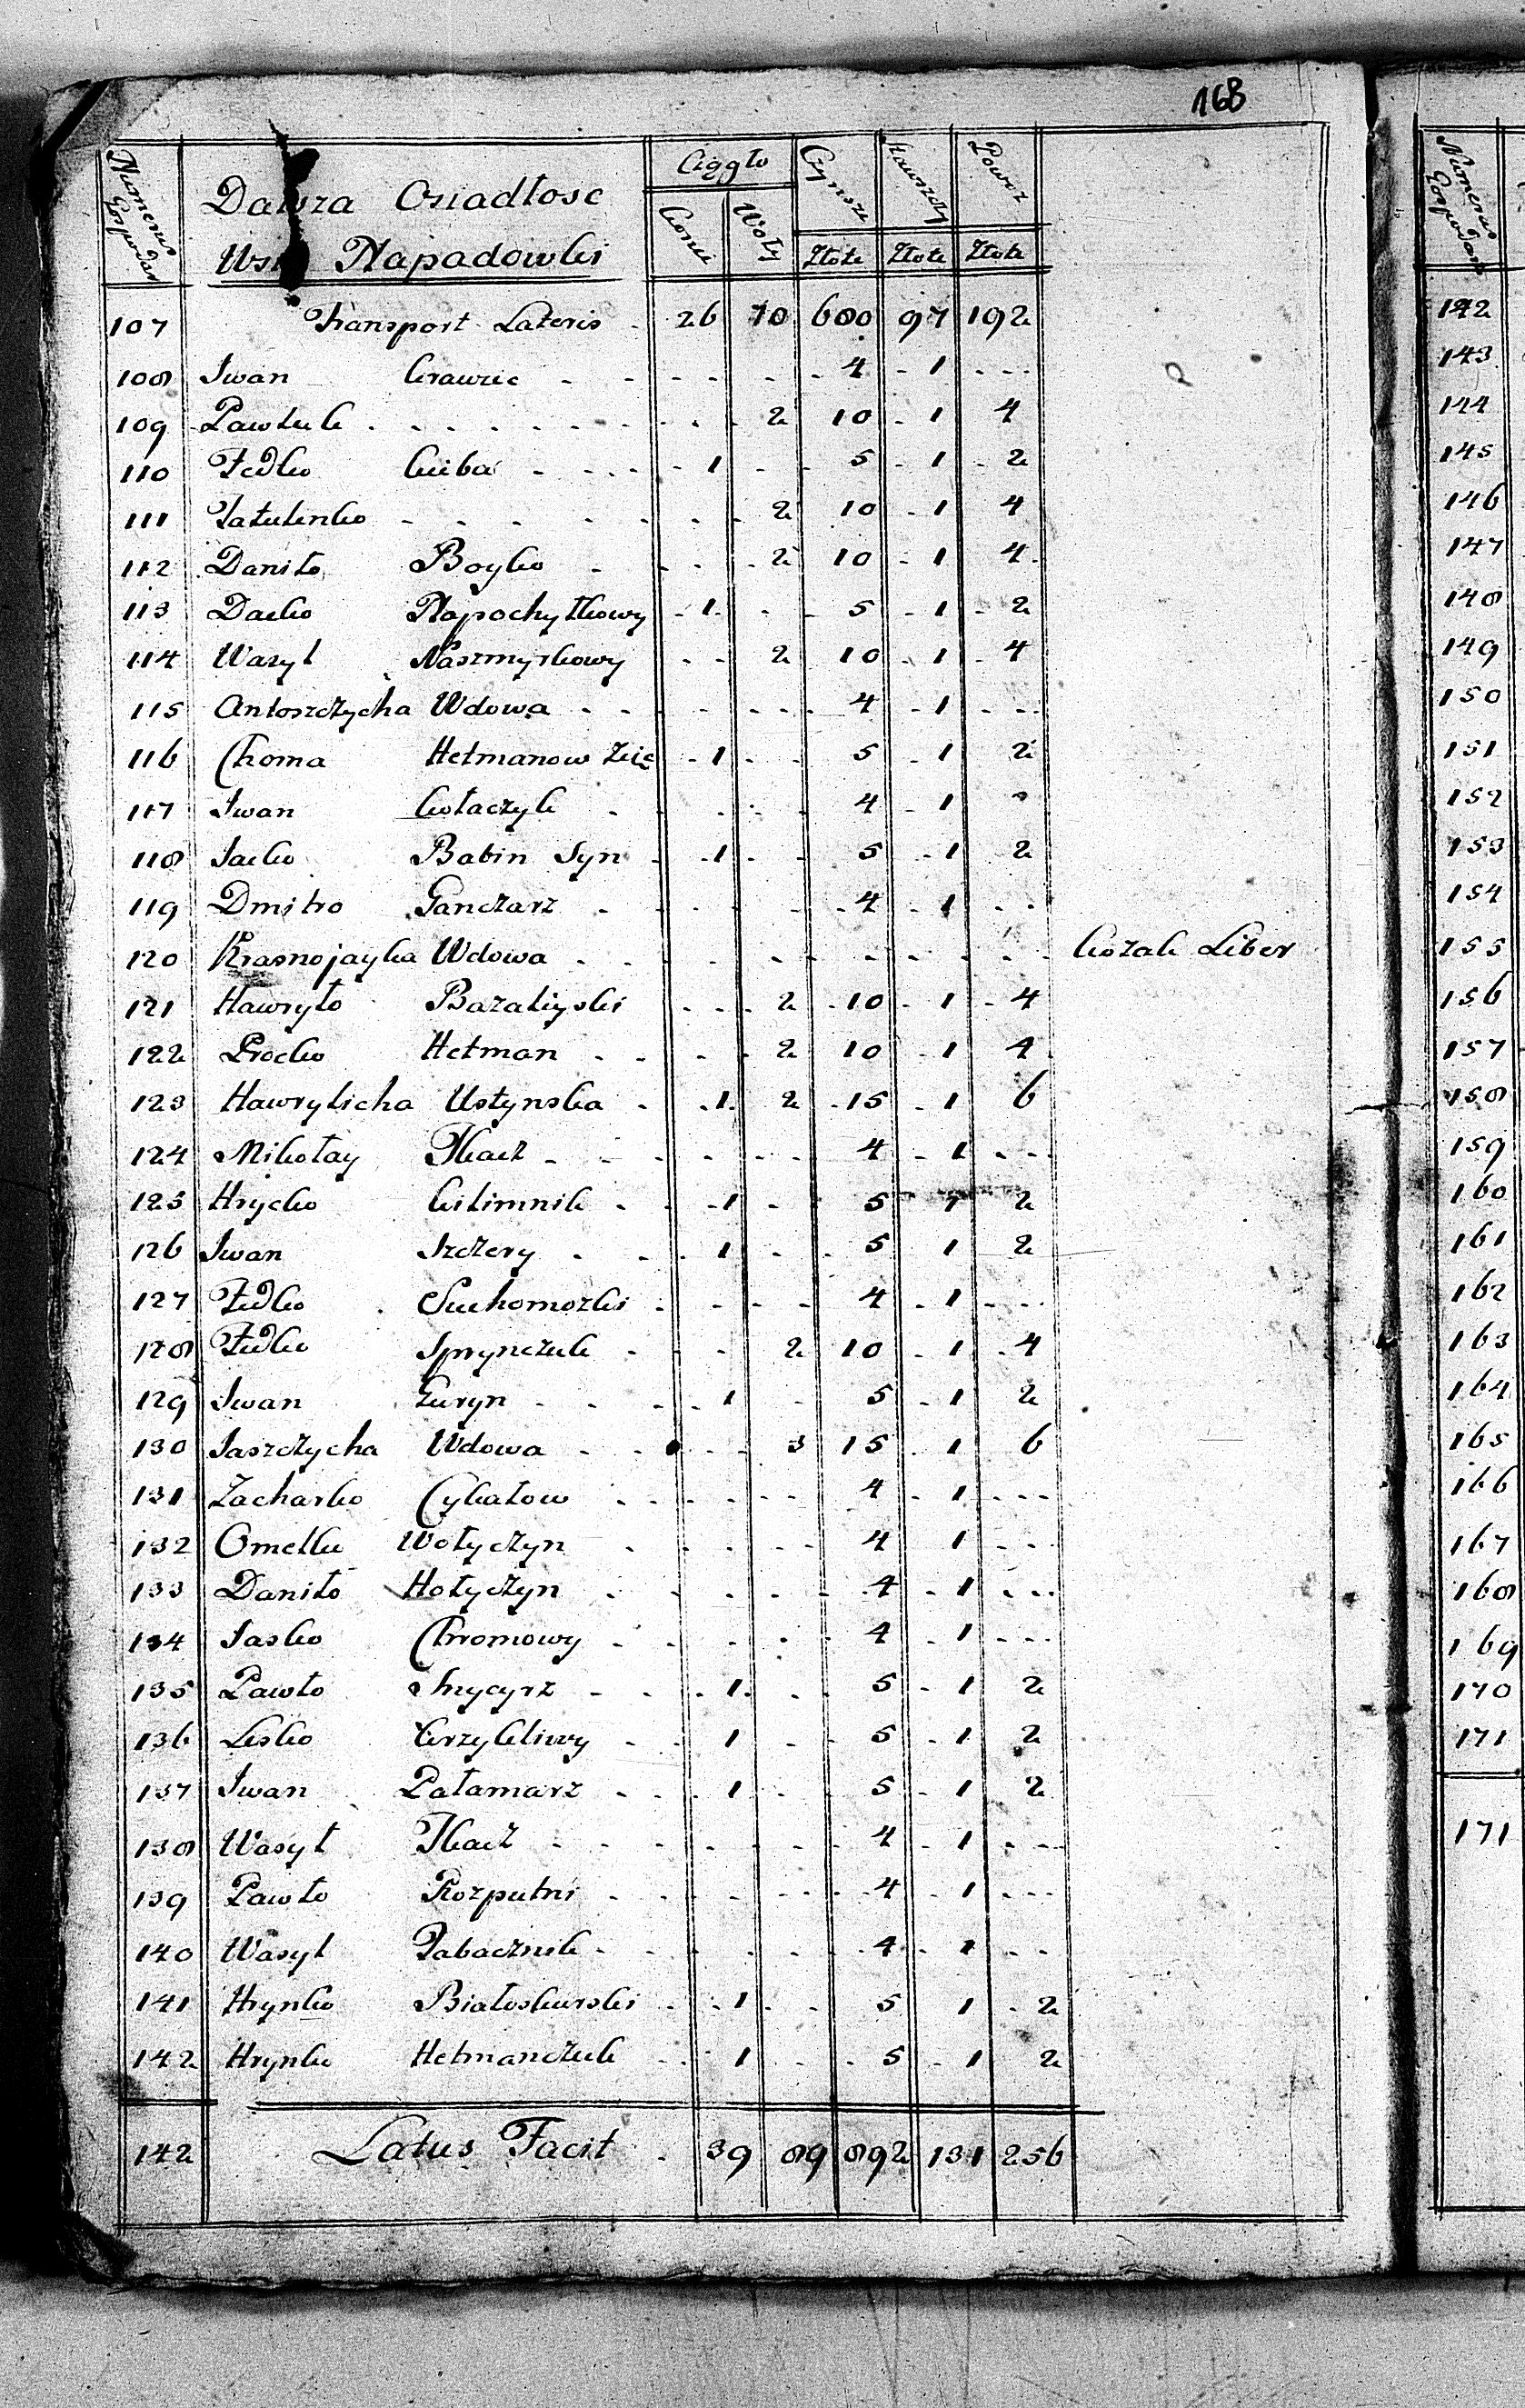 168
Numerus Gospodarz
Dalsza Osiadłosc
Wsi Napadowki
Ciągło Czynsze Powoz
Konie Woły Złote Złote Złote
107 Transport Lateris 26 70 600 97 192
108 Iwan Krawiec 4 1
109 Pawluk 2 10 1 4
110 Fedko Kuiba 1 5 1 2
111 2 10 1 4
112 Daniło Boyko 2 10 1 4
113 Dacko Napochytkowy 1 5 1 2
114 Wasyl Naszmyrkowy 2 10 1 4
115 Antoszczycha Wdowa 4 1
116 Choma Hetmanow Zię 1 5 1 2
117 Iwan Kołaczyk 4 1
118 Jacko Babin Syn 1 5 1 2
119 Dmitro Ganczarz 4 1
120 Krasnojayka Wdowa Kozak Liber
121 Hawryło Bazaliyski 2 10 1 4
122 Procko Hetman 2 10 1 4
123 Hawrylicha Ustynska 1 2 15 1 6
124 Mikołay Tkacz 4 1
125 Hrycko Kilimnik 1 5 1 2
126 Iwan Szczery 1 5 1 2
127 Fedko Suchomozki 4 1
128 Fedko Sprynczuk 2 10 1 4
129 Iwan Żuryn 1 5 1 2
130 Jaszczycha Wdowa 3 15 1 6
131 Zacharko Cybałow 4 1
132 Omelko Wołyczyn 4 1
133 Daniło Hołyczyn 4 1
134 Jasko Chromowy 4 1
135 Pawło 1 5 1 2
136 Lesko Krzykliwy 1 5 1 2
137 Iwan Pałamarz 1 5 1 2
138 Wasyl Tkacz 4 1
139 Pawło Rozputni 4 1
140 Wasyl Tabacznik 4 1
141 Hrynko Białoskurski 1 5 1 2
142 Hrynko Hetmanczuk 1 5 1 2
142 Latus Facit 39 89 892 131 256
Numerus Gospodarz
142
143
144
145
146
147
148
149
150
151
152
153
154
155
156
157
158
159
160
161
162
163
164
165
166
167
168
169
170
171
171